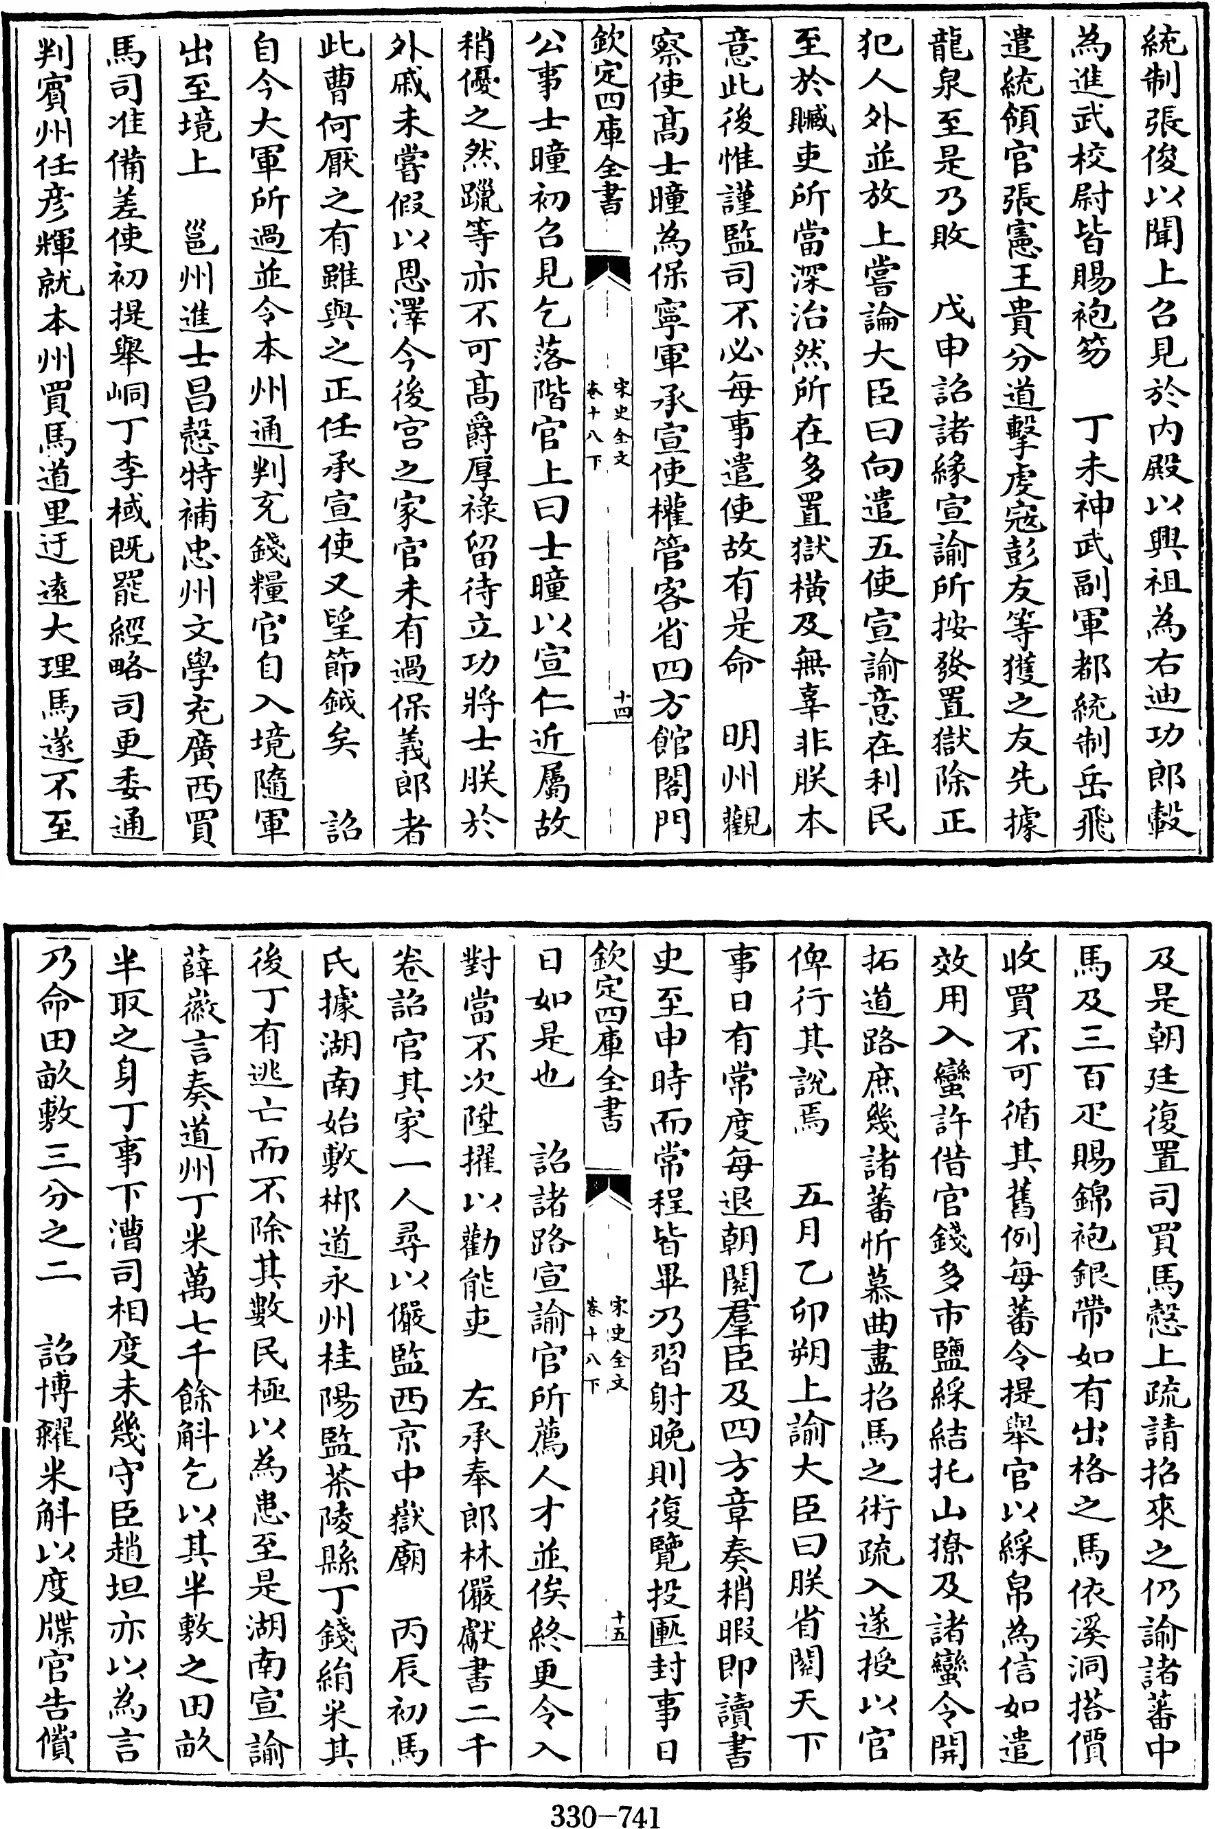 統制張俊以聞上召見於内殿以興祖為右迪功郎轂
為進武校尉皆賜袍笏　丁未神武副軍都統制岳飛
遣統領官張憲王貴分道擊䖍寇彭友等獲之友先據
龍泉至是乃敗　戊申詔諸縁宣諭所按發置獄除正
犯人外並放上嘗論大臣曰向遣五使宣諭意在利民
至於贓吏所當深治然所在多置獄横及無辜非朕本
意此後惟謹監司不必每事遣使故有是命　明州觀
察使髙士瞳為保寧軍承宣使權管客省四方館閤門
欽定四庫全書
宋史全文
卷十八下
十四
公事士瞳初召見乞落階官上曰士瞳以宣仁近屬故
稍優之然躐等亦不可髙爵厚禄留待立功將士朕於
外戚未嘗假以恩澤今後宫之家官未有過保義郎者
此曹何厭之有雖與之正任承宣使又望節鉞矣　詔
自今大軍所過並令本州通判充錢糧官自入境隨軍
出至境上　邕州進士昌慤特補忠州文學充廣西買
馬司准備差使初提舉峒丁李棫既罷經略司更委通
判賓州任彦輝就本州買馬道里迂逺大理馬遂不至
及是朝廷復置司買馬慤上疏請招來之仍諭諸蕃中
馬及三百疋賜錦袍銀帶如有出格之馬依溪洞搭價
收買不可循其舊例每蕃令提舉官以綵帛為信如遣
效用入蠻許借官錢多市鹽綵結托山獠及諸蠻令開
拓道路庶幾諸蕃忻慕曲盡招馬之術疏入遂授以官
俾行其說焉　五月乙卯朔上諭大臣曰朕省閱天下
事日有常度每退朝閲羣臣及四方章奏稍暇即讀書
史至申時而常程皆畢乃習射晩則復覽投匭封事日
欽定四庫全書
宋史全文
卷十八下
十五
日如是也　詔諸路宣諭官所薦人才並俟終更令入
對當不次陞擢以勸能吏　左承奉郎林儼獻書二千
卷詔官其家一人尋以儼監西京中嶽廟　丙辰初馬
氏據湖南始敷郴道永州桂陽監茶陵縣丁錢絹米其
後丁有逃亡而不除其數民極以為患至是湖南宣諭
薛徽言奏道州丁米萬七千餘斛乞以其半敷之田畝
半取之身丁事下漕司相度未幾守臣趙坦亦以為言
乃命田畝敷三分之二　詔博糴米斛以度牒官告償
330-741